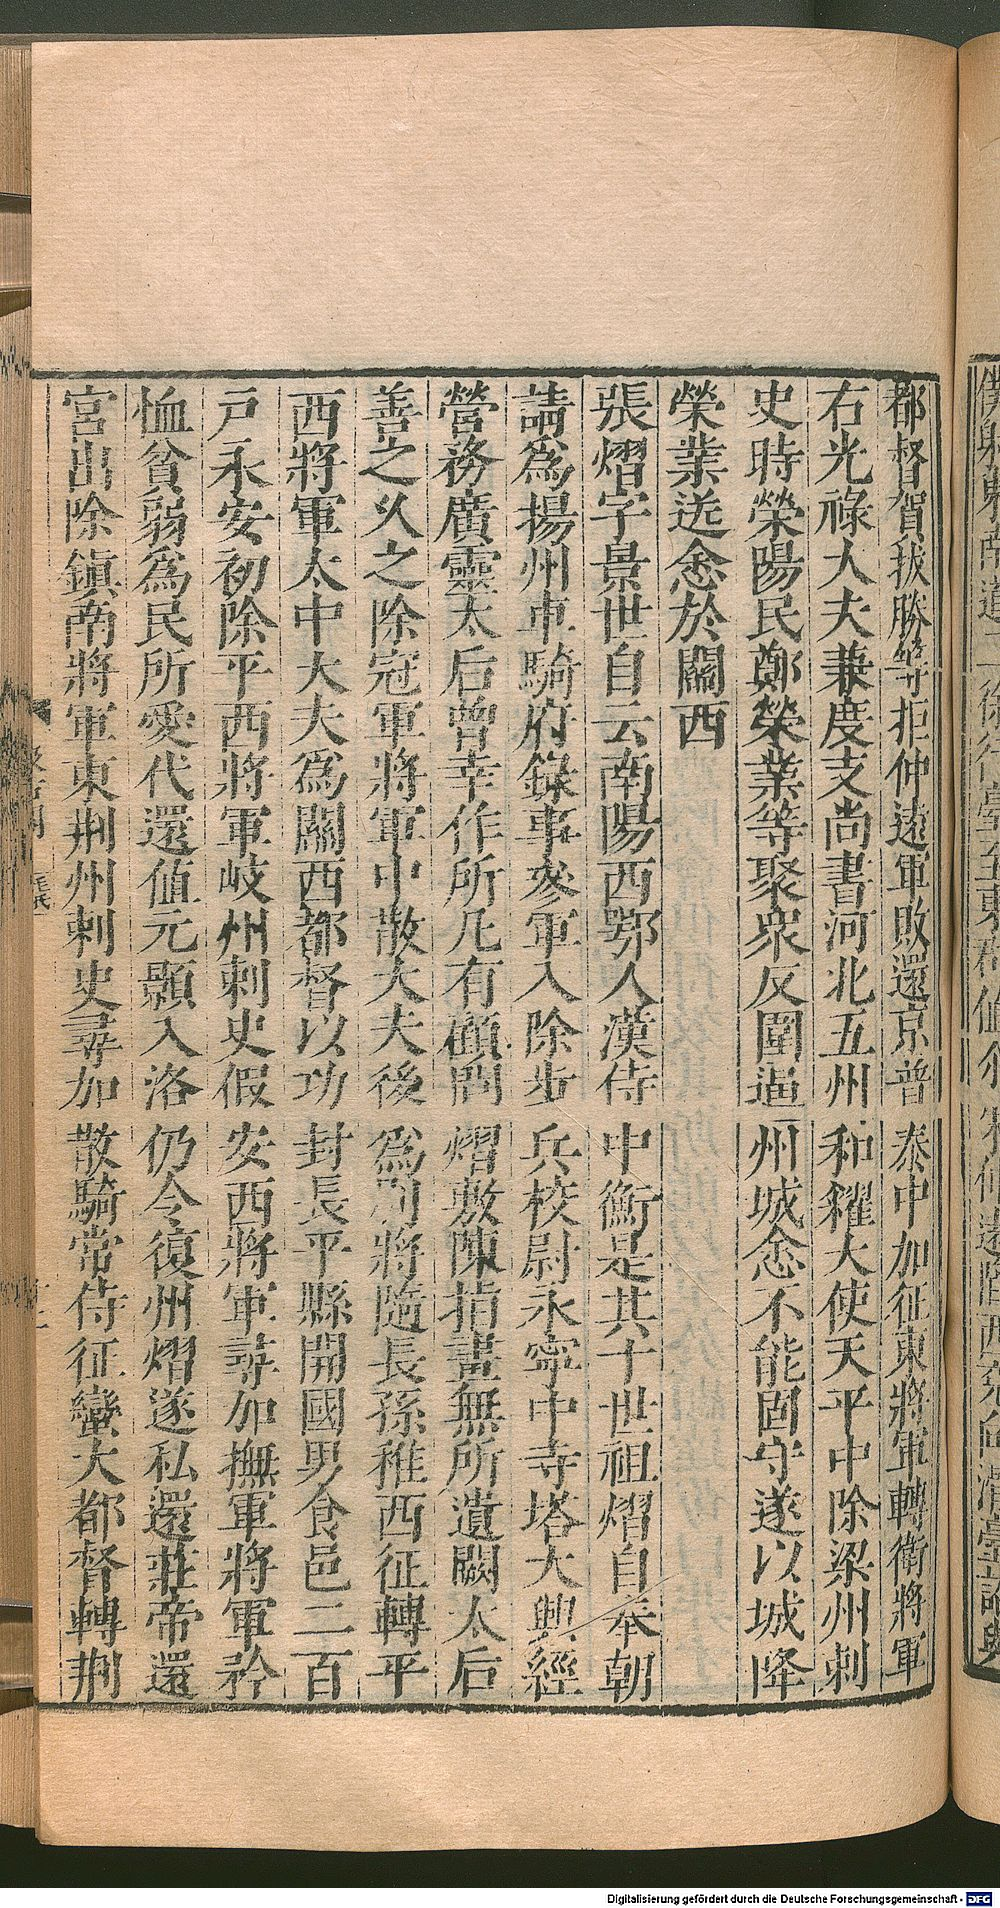 都督賀拔勝等拒仲遠軍敗還京普泰中加征東將軍轉衛將軍
右光祿大夫兼度支尚書河北五州和糴大使天平中除梁州刺
史時滎陽民鄭榮業等聚衆反圍逼州城悆不能固守遂以城降
榮業送悆於關西
張熠字景世自云南陽西鄂人漢侍中衡是其十世祖熠自奉朝
請為揚州車騎府錄事參軍入除步兵校尉永寧中寺塔大興經
營務廣靈太后曾幸作所凡有顧問熠敷陳指畫無所遺闕太后
善之久之除冠軍將軍中散大夫後為別將隨長孫稚西征轉平
西將軍太中大夫為關西都督以功封長平縣開國男食邑二百
戶永安初除平西將軍岐州刺史假安西將軍尋加撫軍將軍矜
恤貧弱為民所愛代還值元顥入洛仍令復州熠遂私還莊帝還
宮出除鎮南將軍東荆州刺史尋加散騎常侍征蠻大都督轉荆
Digitalisierung gefördert durch die Deutsche Forschungsgemeinschaft - DFG